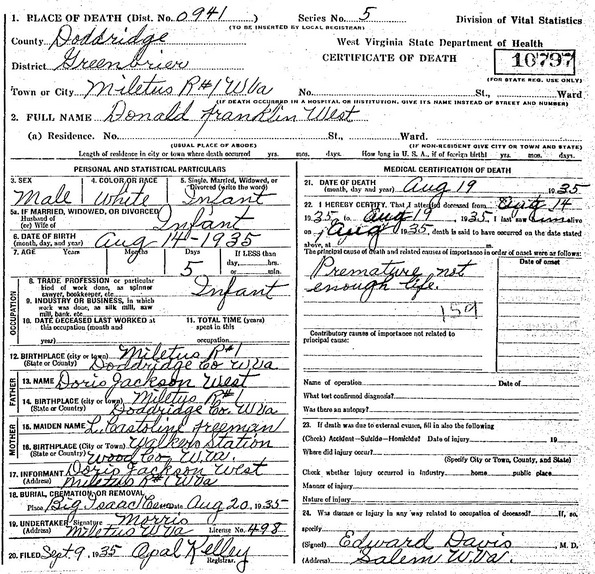 1. PLACE OF DEATH (Dist. No. 0941) Series No. 5 Division of Vital Statistics
(TO BE INSERTED BY LOCAL REGISTRAR)
County Doddridge West Virginia State Department of Health
District Greenbrier CERTIFICATE OF DEATH 10797
(FOR STATE REG. USE ONLY)
Town or City Miletus R#1 W Va No. St., Ward
(IF DEATH OCCURRED IN A HOSPITAL OR INSTITUTION, GIVE ITS NAME INSTEAD OF STREET AND NUMBER)
2. FULL NAME Donald Franklin West
(a) Residence. No. St., Ward.
(USUAL PLACE OF ABODE) (IF NON-RESIDENT GIVE CITY OR TOWN AND STATE)
Length of residence in city or town where death occurred yrs. mos. days. How long in U. S. A., if of foreign birth! yrs. mos. days.
PERSONAL AND STATISTICAL PARTICULARS
3. SEX 4. COLOR OR RACE 5. Single, Married, Widowed, or Divorced (write the word)
Male White Infant
5a. IF MARRIED, WIDOWED, OR DIVORCED
Husband of
or Wife of Infant
6. DATE OF BIRTH
(month, day, and year) Aug 14-1935
7. AGE Years Months Days If LESS than
5 day, hrs.
or min.
OCCUPATION
8. TRADE, PROFESSION or particular
kind of work done, as spinner
sawyer, bookkeeper, etc. Infant
9. INDUSTRY OR BUSINESS, in which
work was done, as silk mill, saw
mill, bank, etc.
10. DATE DECEASED LAST WORKED at
this occupation (month and
year)
11. TOTAL TIME (years)
spent in this
occupation
12. BIRTHPLACE (city or town) Miletus R#1
(State or County) Doddridge Co W Va
FATHER
13. NAME Doris Jackson West
14. BIRTHPLACE (city or town) Miletus R#1
(State or County) Doddridge Co. W Va
MOTHER
15. MAIDEN NAME L. Freeman
16. BIRTHPLACE (City or Town) Walkers Station
(State or County) Wood Co W. Va.
17. INFORMANT Doris Jackson West
(Address) Miletus R#1 W Va
18. BURIAL, CREMATION, OR REMOVAL
Place Big Isaac Cem Date Aug 20, 1935
19. UNDERTAKER Signature Morris
Miletus W Va License No. 498
20. FILED Sept. 9, 1935 Opal Kelley
Registrar.
MEDICAL CERTIFICATION OF DEATH
21. DATE OF DEATH
(month, day and year) Aug 19 1935
22. I HEREBY CERTIFY, That I attended deceased from Aug 14
1935 to Aug 19 1935. I last saw him alive
on Aug 1935, death is said to have occurred on the date stated
above, at m.
The principal cause of death and related causes of importance in order of onset were as follows:
Date of onset
Premature not
enough life.
159
Contributory causes of importance not related to
principal cause:
Name of operation Date of
What test confirmed diagnosis?
Was there an autopsy?
23. If death was due to external causes, fill in also the following
(Check) Accident—Suicide—Homicide? Date of injury 19
Where did injury occur?
(Specify City or Town, County, and State)
Check whether injury occurred in industry home public place
Manner of injury
Nature of injury
24. Was disease or injury in any way related to occupation of deceased? If so,
specify
(Signed) Edward Davis, M. D.
(Address) Salem W. Va.